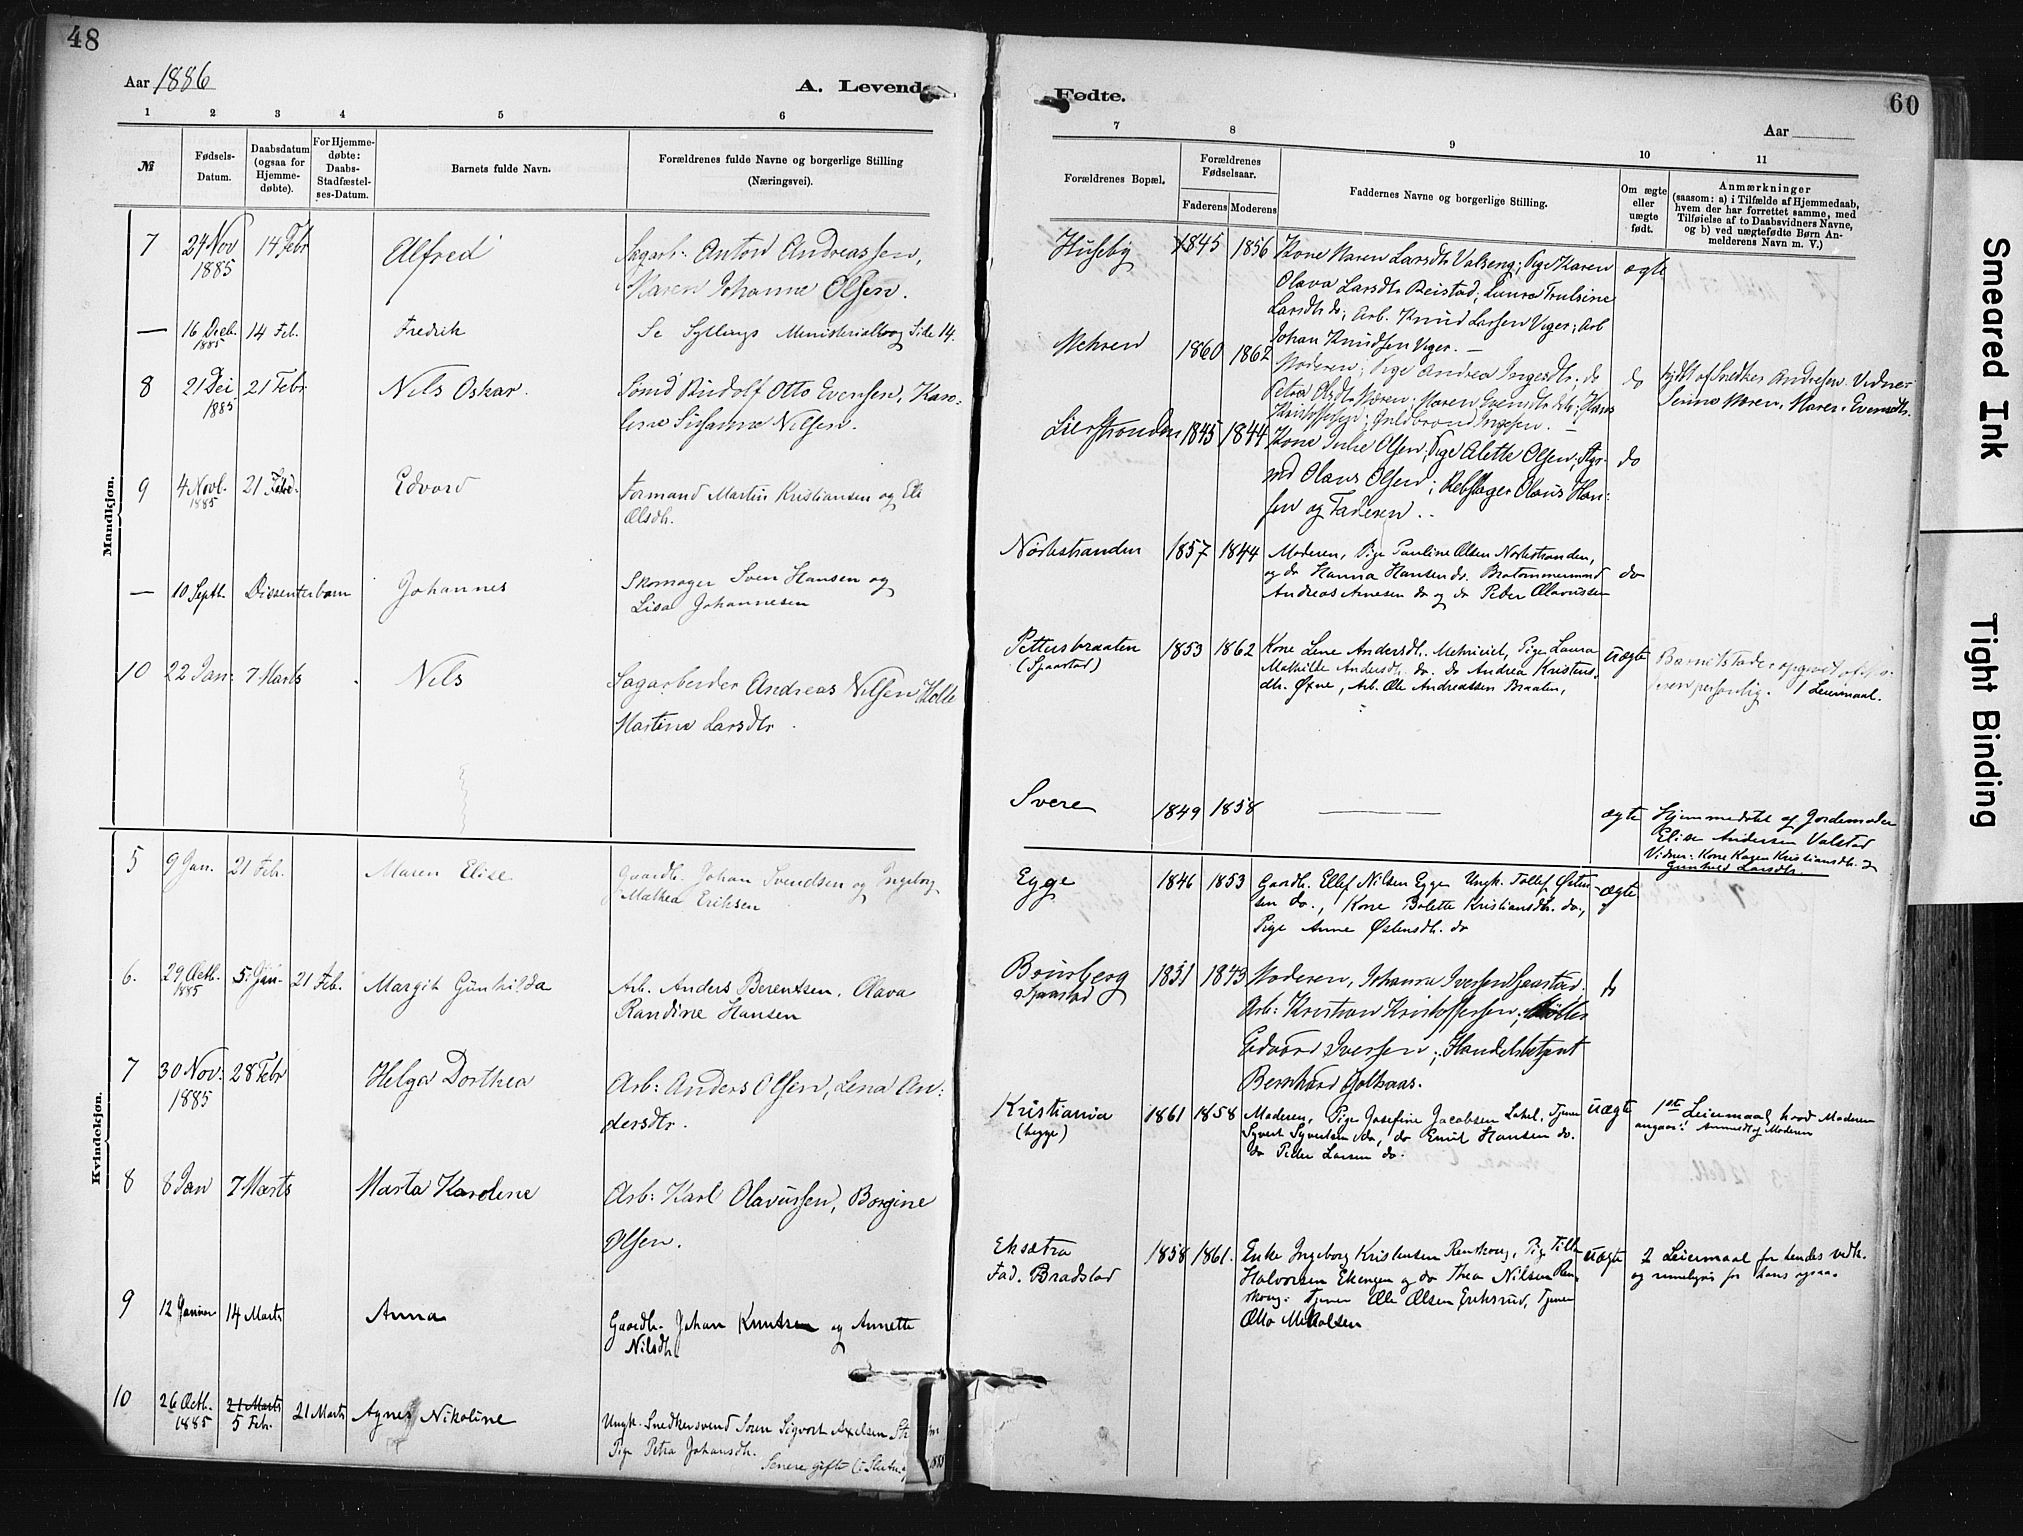 48
Aar 1886
A. Levende
1 2 3 4 5 6
№
Fødsels-
Datum.
Daabsdatum
(ogsaa for
Hjemme-
døbte).
For Hjemme-
døbte:
Daabs-
Stadfæstel-
ses-Datum.
Barnets fulde Navn.
Forældrenes fulde Navne og borgerlige Stilling
(Næringsvei).
Mandkjøn.
7 24 Nov 1885 14 Febr Alfred
Sagarb: Anton Andreassen,
Maren Johanne Olsen.
— 16 Decb. 1885 14 Feb. Fredrik Se Syllings Ministerialbog Side 14.
8 21 Dei 1885 21 Febr Nils Oskar
Rudolf Otto Evensen, Karo-
line Susanne Nilsen.
9 4 Novb. 1885 21 Febr. Edvard
Formand Martin Kristiansen og
Olsdtr.
— 10 Septb. Dissenterbarn Johannes
Skomager Sven Hansen og
Lisa Johannesen
10 22 Jan: 7 Marts Nils
Sagarbeider Andreas Nilsen Helle
Martine Larsdtr.
Kvindekjøn.
5 9 Jan. 21 Feb. Maren Elise
Gaardb. Johan Svendsen og Ingeborg
Mathea Eriksen
6. 29 Octb. 1885 5. Jan. 21 Feb. Margit Gunhilda
Arb. Anders Berentsen. Olava
Randine Hansen
7 30 Nov: 1885 28 Febr Helga Dorthea
Arb: Anders Olsen, Lena An:
dersdtr.
8 8 Jan 7 Marts Marta Karoline
Arb: Karl Olavussen, Borgine
Olsen.
9 12 Januar 14 Marts Anna
Gaardb. Johan Knutsen og Annette
Nilsdtr.
10 26 Octb. 1885 21 Marts 5 Feb. 21 Marts Agnes Nikoline
Ungk. Snedkersvend Søren Sigvart Axelsen
Pige Petra Johansdtr.
Senere gifte
Fødte.
60
Aar
7 8 9 10 11
Forældrenes Bopæl.
Forældrenes
Fødselsaar.
Faderens Moderens
Faddernes Navne og borgerlige Stilling.
Om ægte
eller
uægte
født.
Anmærkninger
(saasom: a) i Tilfælde af Hjemmedaab,
hvem der har forrettet samme, med
Tilføielse af to Daabsvidners Navne,
og b) ved uægtefødte Børn An-
melderens Navn m. V.)
Huseby 1845 1856 Kone Maren Larsdtr. Valseng; Pige Karen ægte
Olava Larsdtr. Reistad; Laura Trulsine
Larsdtr. do; Arb. Knud Larsen Viger; Arb
Johan Knudsen Viger. —
Mehren 1860 1862 Moderen; Pige Andrea Ingesdtr. do do
Petra Olsdtr.
Kristoffersen; Guldbrand Ingesen. —
Lierstranden 1845 1844 Kone Julie Olsen; Pige Alette Olsen; do
Olaus Olsen; Rebslager Olaus Han:
sen og Faderen..
Nøstestranden 1857 1844 Moderen, Pige Pauline Olsen Nøstestranden, do
og do Hanna Hansen do.
Andreas Arnesen do og do Peder Olavussen
Pettersbraaten 1853 1862 Kone Lene Andersdtr. Pige Laura uægte
(Sjaastad) Mathilde Andersdtr. do. do Andrea Kristens-
dtr. Øxne, Arb. Ole Andreassen Braaten,
personlig. 1 Leiermaal.
Svere 1849 1858 — ægte Hjemmedøbt af Jordemoder
Elise Andersen Valstad
Vidner: Kone Karen Kristiansdtr. &
Gunhild Larsdtr.
Egge 1846 1853 Gaardb. Ellef Nilsen Egge Ungk. Tollef Østen- ægte
sen do., Kone Bolette Kristiansdtr. do.,
Pige Anne Østensdtr. do
Sjaastad 1851 1843 Moderen, Johanna Iversen Sjaastad. do
Arb: Kristian Kristoffersen; Møller
Edvard Iversen; Handelsbetjent
Bernhard Golhaas.
Kristiania 1861 1858 Moderen, Pige Josefine Jacobsen Lahel. Tjener uægte 1ste Leiermaal, hvad Moderen
(Egge) Syvert Syvertsen do, do Emil Hansen do. angaar. Anmeldt af Moderen
do Peder Larsen do.
Eksætra 1858 1861. Enke Ingeborg Kristensen Renskoug, Pige uægte 2 Leiermaal for hendes vedk.
Fad. Bradstad Halvorsen Ekengen og do Thea Nilsen Ren- og rimeligvis for hans ogsaa.
skoug. Tjener Ole Olsen Eriksrud, Tjener
Otto Mikalsen
Smeared Ink
Tight Binding